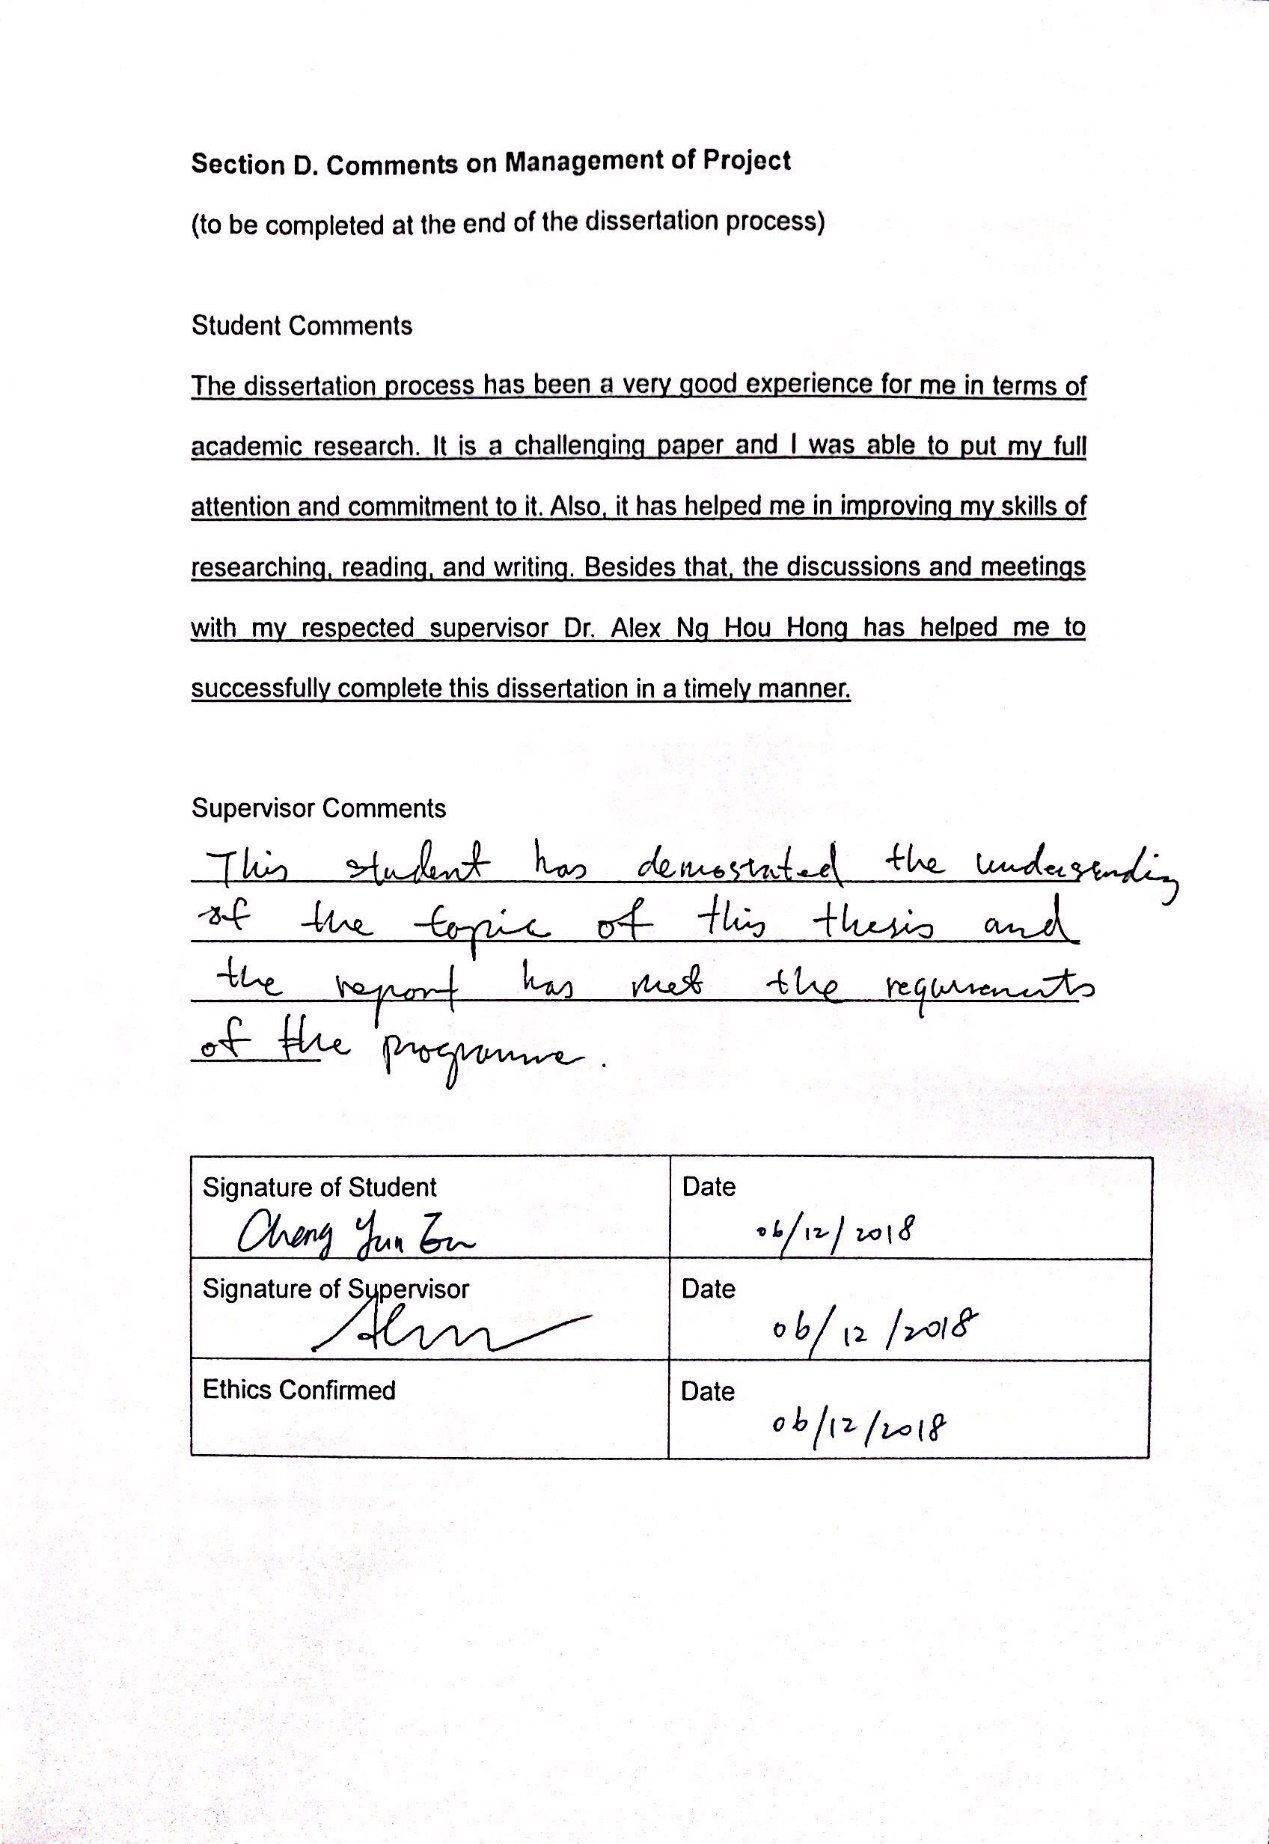 Section D. Comments on Management of Project
(to be completed at the end of the dissertation process)
Student Comments
The dissertation process has been a very good experience for me in terms of
academic research. It is a challenging paper and I was able to put my full
attention and commitment to it. Also, it has helped me in improving my skills of
researching, reading, and writing. Besides that, the discussions and meetings
with my respected supervisor Dr. Alex Ng Hou Hong has helped me to
successfully complete this dissertation in a timely manner.
Supervisor Comments
This student has demostrated the
of the topic of this thesis and
the report has met the requirements
of the programme.
Signature of Student
Date
Cheng Yun
06/12/2018
Signature of Supervisor
Date
06/12/2018
Ethics Confirmed
Date
06/12/2018